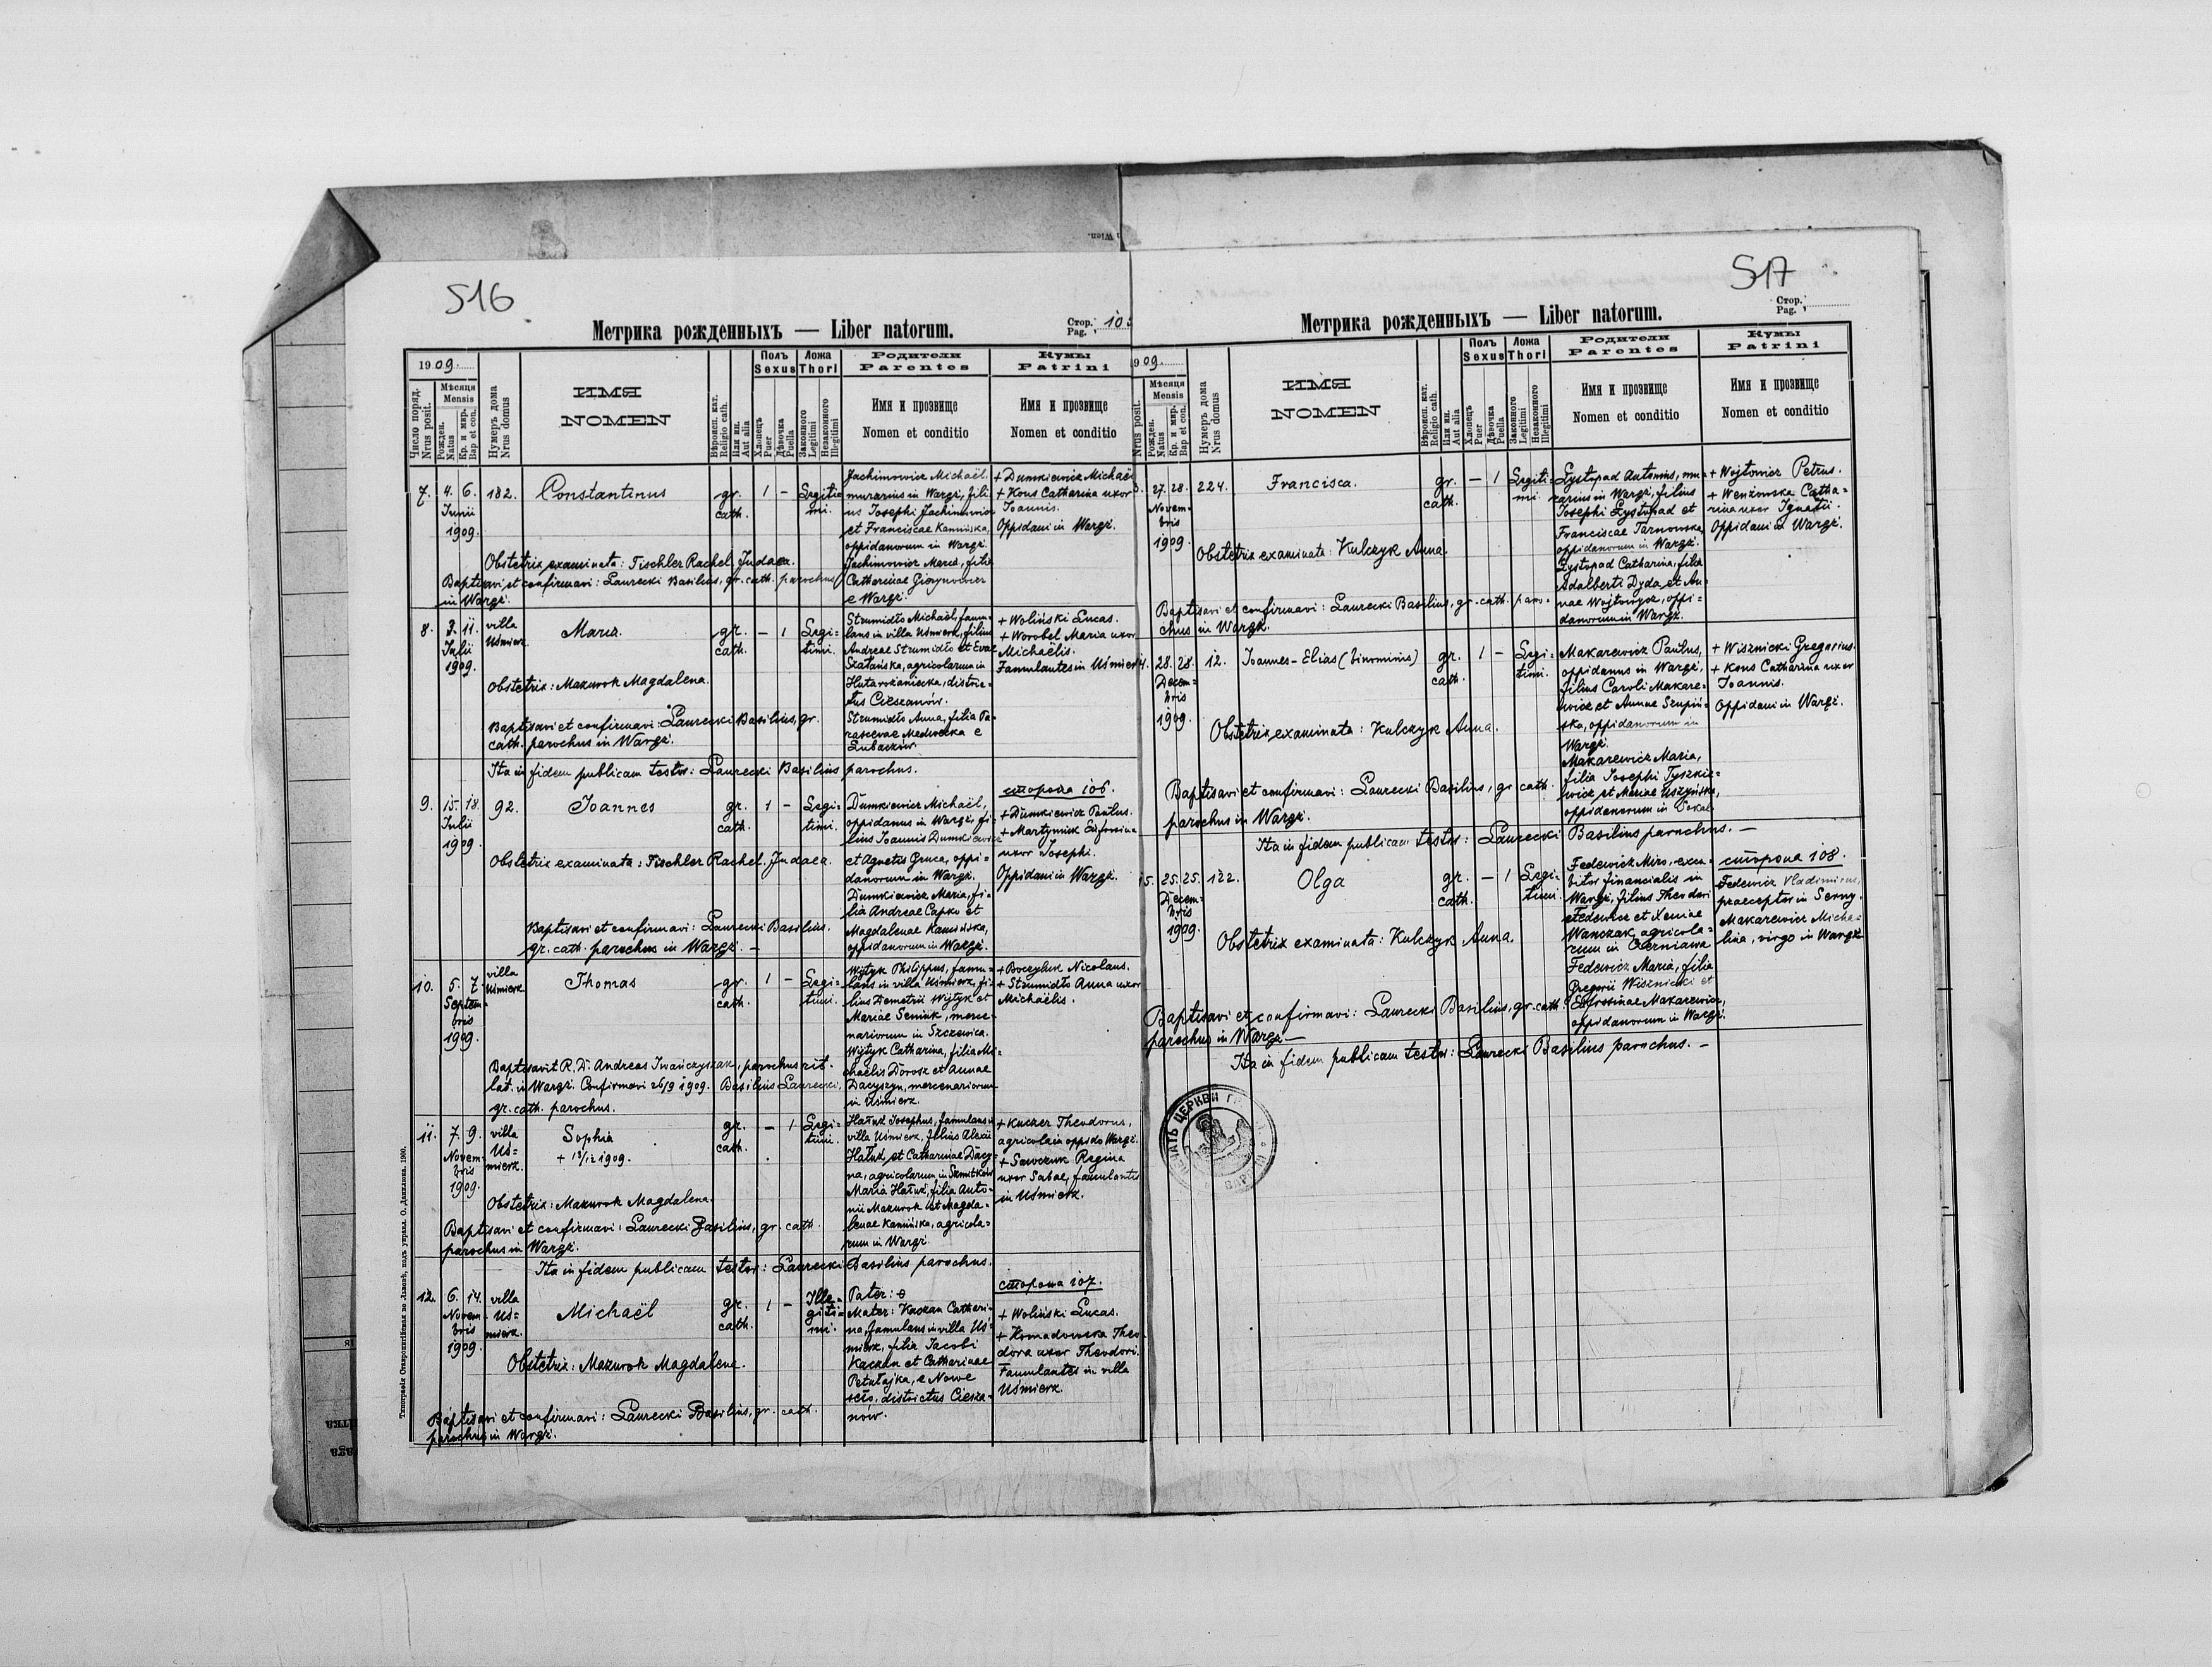 516
Метрика рожденныхъ — Liber natorum.
Стор.
Pag. 105
1909.
Число поряд.
Nrus posit.
Мѣсяця
Mensis
Рожден.
Natus
Кр. и мир.
Bap et con.
Нумеръ дома
Nrus domus
ИМЯ
NOMEN
Вѣроисп. кат.
Religio cath.
Или ин.
Aut alia
Полъ
Sexus
Хлопецъ
Puer
Дѣвочка
Puella
Ложа
Thori
Законного
Legitimi
Незаконного
Illegitimi
Родители
Parentes
Имя и прозвище
Nomen et conditio
Кумы
Patrini
Имя и прозвище
Nomen et conditio
7. 4. 6. Junii 1909. 182. Constantinus gr. cath. 1 – Legitimi.
Jachimowicz Michaël,
murarius in Waręż, fili-
us Josephi Jachimowicz
et Franciscae Kamińska,
oppidanorum in Waręż.
Jachimowicz Maria, filia
Catherinae
e Waręż.
+ Dumkiewicz Michaël
+ Kons Catharina uxor
Joannis.
Oppidani in Waręż.
Obstetrix examinata: Fischler Rachel. Judaea.
Baptisavi et confirmavi: Laurecki Basilius, gr. cath. parochus
in Waręż.
8. 3. 11. Julii 1909. villa Uśmierz. Maria. gr. cath. – 1 Legi=timi.
Strumidło Michaël, famu=
lans in villa Uśmierz, filius
Andreae Strumidło et Evae
Szatańska, agricolarum in
Hutarożaniecka, distric=
tus Cieszanów.
Strumidło Anna, filia Pa=
rascevae e
Lubaczów.
+ Woliński Lucas.
+ Worobel Maria uxor
Michaëlis.
Famulantes in Uśmierz
Obstetrix: Mazurok Magdalena.
Baptisavi et confirmavi: Laurecki Basilius, gr.
cath. parochus in Waręż.
Ita in fidem publicam testor: Laurecki Basilius parochus.
сторона 106.
9. 15. 18. Julii 1909. 92. Joannes gr. cath. 1 – Legi=timi.
Dumkiewicz Michaël,
oppidanus in Waręż, fi=
lius Joannis Dumkiewicz
et Agnetis Gruca, oppi=
danorum in Waręż.
Dumkiewicz Maria, fi=
lia Andreae Capko et
Magdalenae Kamińska,
oppidanorum in Waręż.
+ Dumkiewicz Paulus.
+ Martyniuk Eufrosina
uxor Josephi.
Oppidani in Waręż.
Obstetrix examinata: Fischler Rachel. Judaea.
Baptisavi et confirmavi: Laurecki Basilius.
gr. cath. parochus in Waręż. –
10. 5. 7. Septem=bris 1909. villa Uśmierz Thomas gr. cath. 1 – Legi=timi.
Wójtyk Philippus, famu=
lans in villa Uśmierz, fi=
lius Demetrii Wójtyk et
Mariae Seniuk, merce=
nariorum in Szczewica.
Wójtyk Catharina, filia Mi=
chaëlis Dorosz et Annae
Dacyszyn, mercenariorum
in Uśmierz.
Nicolaus.
+ Strumidło Anna uxor
Michaëlis.
Baptisavit R. D. Andreas Iwańczyszak, parochus rit.
lat. in Waręż. Confirmavi 26/9 1909. Basilius Laurecki,
gr. cath. parochus.
11. 7. 9. Novem=bris 1909. villa Uś=mierz. Sophia
+ 13/12 1909.
gr. cath. – 1 Legi=timi.
Hałuk Josephus, famulans in
villa Uśmierz, filius Alexii
Hałuk et Catharinae Dacy=
na, agricolarum in Szmitków
Maria Hałuk, filia Anto=
nii Mazurok et Magda=
lenae Kamińska, agricola=
rum in Waręż.
+ Kuczer Theodorus,
agricola in oppido Waręż.
+ Sawczuk Regina
uxor Sabae, famulantes
in Uśmierz.
Obstetrix: Mazurok Magdalena.
Baptisavi et confirmavi: Laurecki Basilius, gr. cath.
parochus in Waręż.
Ita in fidem publicam testor: Laurecki Basilius parochus.
сторона 107.
12. 6. 14. Novem=bris 1909. villa Uś=mierz. Michaël gr. cath. 1 – Ille=giti=mi.
Pater: o
Mater: Kaczan Cathari=
na, famulans in villa Uś=
mierz, filia Jacobi
Kaczan et Catharinae
Petułajka, e Nowe
sioło, districtus Ciesza=
nów.
+ Woliński Lucas.
+ Komadowska Theo=
dora uxor Theodori.
Famulantes in villa
Uśmierz.
Obstetrix: Mazurok Magdalena.
Baptisavi et confirmavi: Laurecki Basilius, gr. cath.
parochus in Waręż.
Типографія Ставропигійская во Львовѣ, подъ управл. О. Данилюка. 1900.
517
Метрика рожденныхъ — Liber natorum.
Стор.
Pag.
1909.
Nrus posit.
Мѣсяця
Mensis
Рожден.
Natus
Кр. и мир.
Bap et con.
Нумеръ дома
Nrus domus
ИМЯ
NOMEN
Вѣроисп. кат.
Religio cath.
Или ин.
Aut alia
Полъ
Sexus
Хлопецъ
Puer
Дѣвочка
Puella
Ложа
Thori
Законного
Legitimi
Незаконного
Illegitimi
Родители
Parentes
Имя и прозвище
Nomen et conditio
Кумы
Patrini
Имя и прозвище
Nomen et conditio
3. 27. 28. Novem=bris 1909. 224. Francisca. gr. cath. – 1 Legiti=mi.
Łystopad Antonius, mu=
rarius in Waręż, filius
Josephi Łystopad et
Franciscae Tarnowska,
oppidanorum in Waręż.
Łystopad Catharina, filia
Adalberti Dyda et An=
nae Wojtowycz, oppi=
danorum in Waręż.
+ Wojtowicz Petrus.
+ Wenżowska Catha=
rina uxor Ignatii.
Oppidani in Waręż.
Obstetrix examinata: Kulczyk Anna.
Baptisavi et confirmavi: Laurecki Basilius, gr. cath. paro=
chus in Waręż.
14. 28. 28. Decem=bris 1909. 12. Joannes-Elias (binominis) gr. cath. 1 – Legi=timi.
Makarewicz Paulus,
oppidanus in Waręż,
filius Caroli Makare=
wicz et Annae Szupiń=
ska, oppidanorum in
Waręż.
Makarewicz Maria,
filia Josephi Tyszkie=
wicz et Mariae Uszyńska,
oppidanorum in Sokal.
+ Wisznicki Gregorius.
+ Kons Catharina uxor
Joannis.
Oppidani in Waręż.
Obstetrix examinata: Kulczyk Anna.
Baptisavi et confirmavi: Laurecki Basilius, gr. cath.
parochus in Waręż.
Ita in fidem publicam testor: Laurecki Basilius parochus. –
сторона 108.
15. 25. 25. Decem=bris 1909. 122. Olga gr. cath. – 1 Legi=timi.
Fedewicz Miro, excu=
bitor financialis in
Waręż, filius Theodori
Fedewicz et Xeniae
Wanczak, agricola=
rum in Czerniawa
Fedewicz Maria, filia
Gregorii Wisznicki et
Eufrosinae Makarewicz,
oppidanorum in Waręż.
Fedewicz Vladimirus,
praeceptor in Serny.
Makarewicz Micha=
lina, virgo in Waręż
Obstetrix examinata: Kulczyk Anna.
Baptisavi et confirmavi: Laurecki Basilius, gr. cath.
parochus in Waręż. –
Ita in fidem publicam testor: Laurecki Basilius parochus. –
ЦЕРКВИ